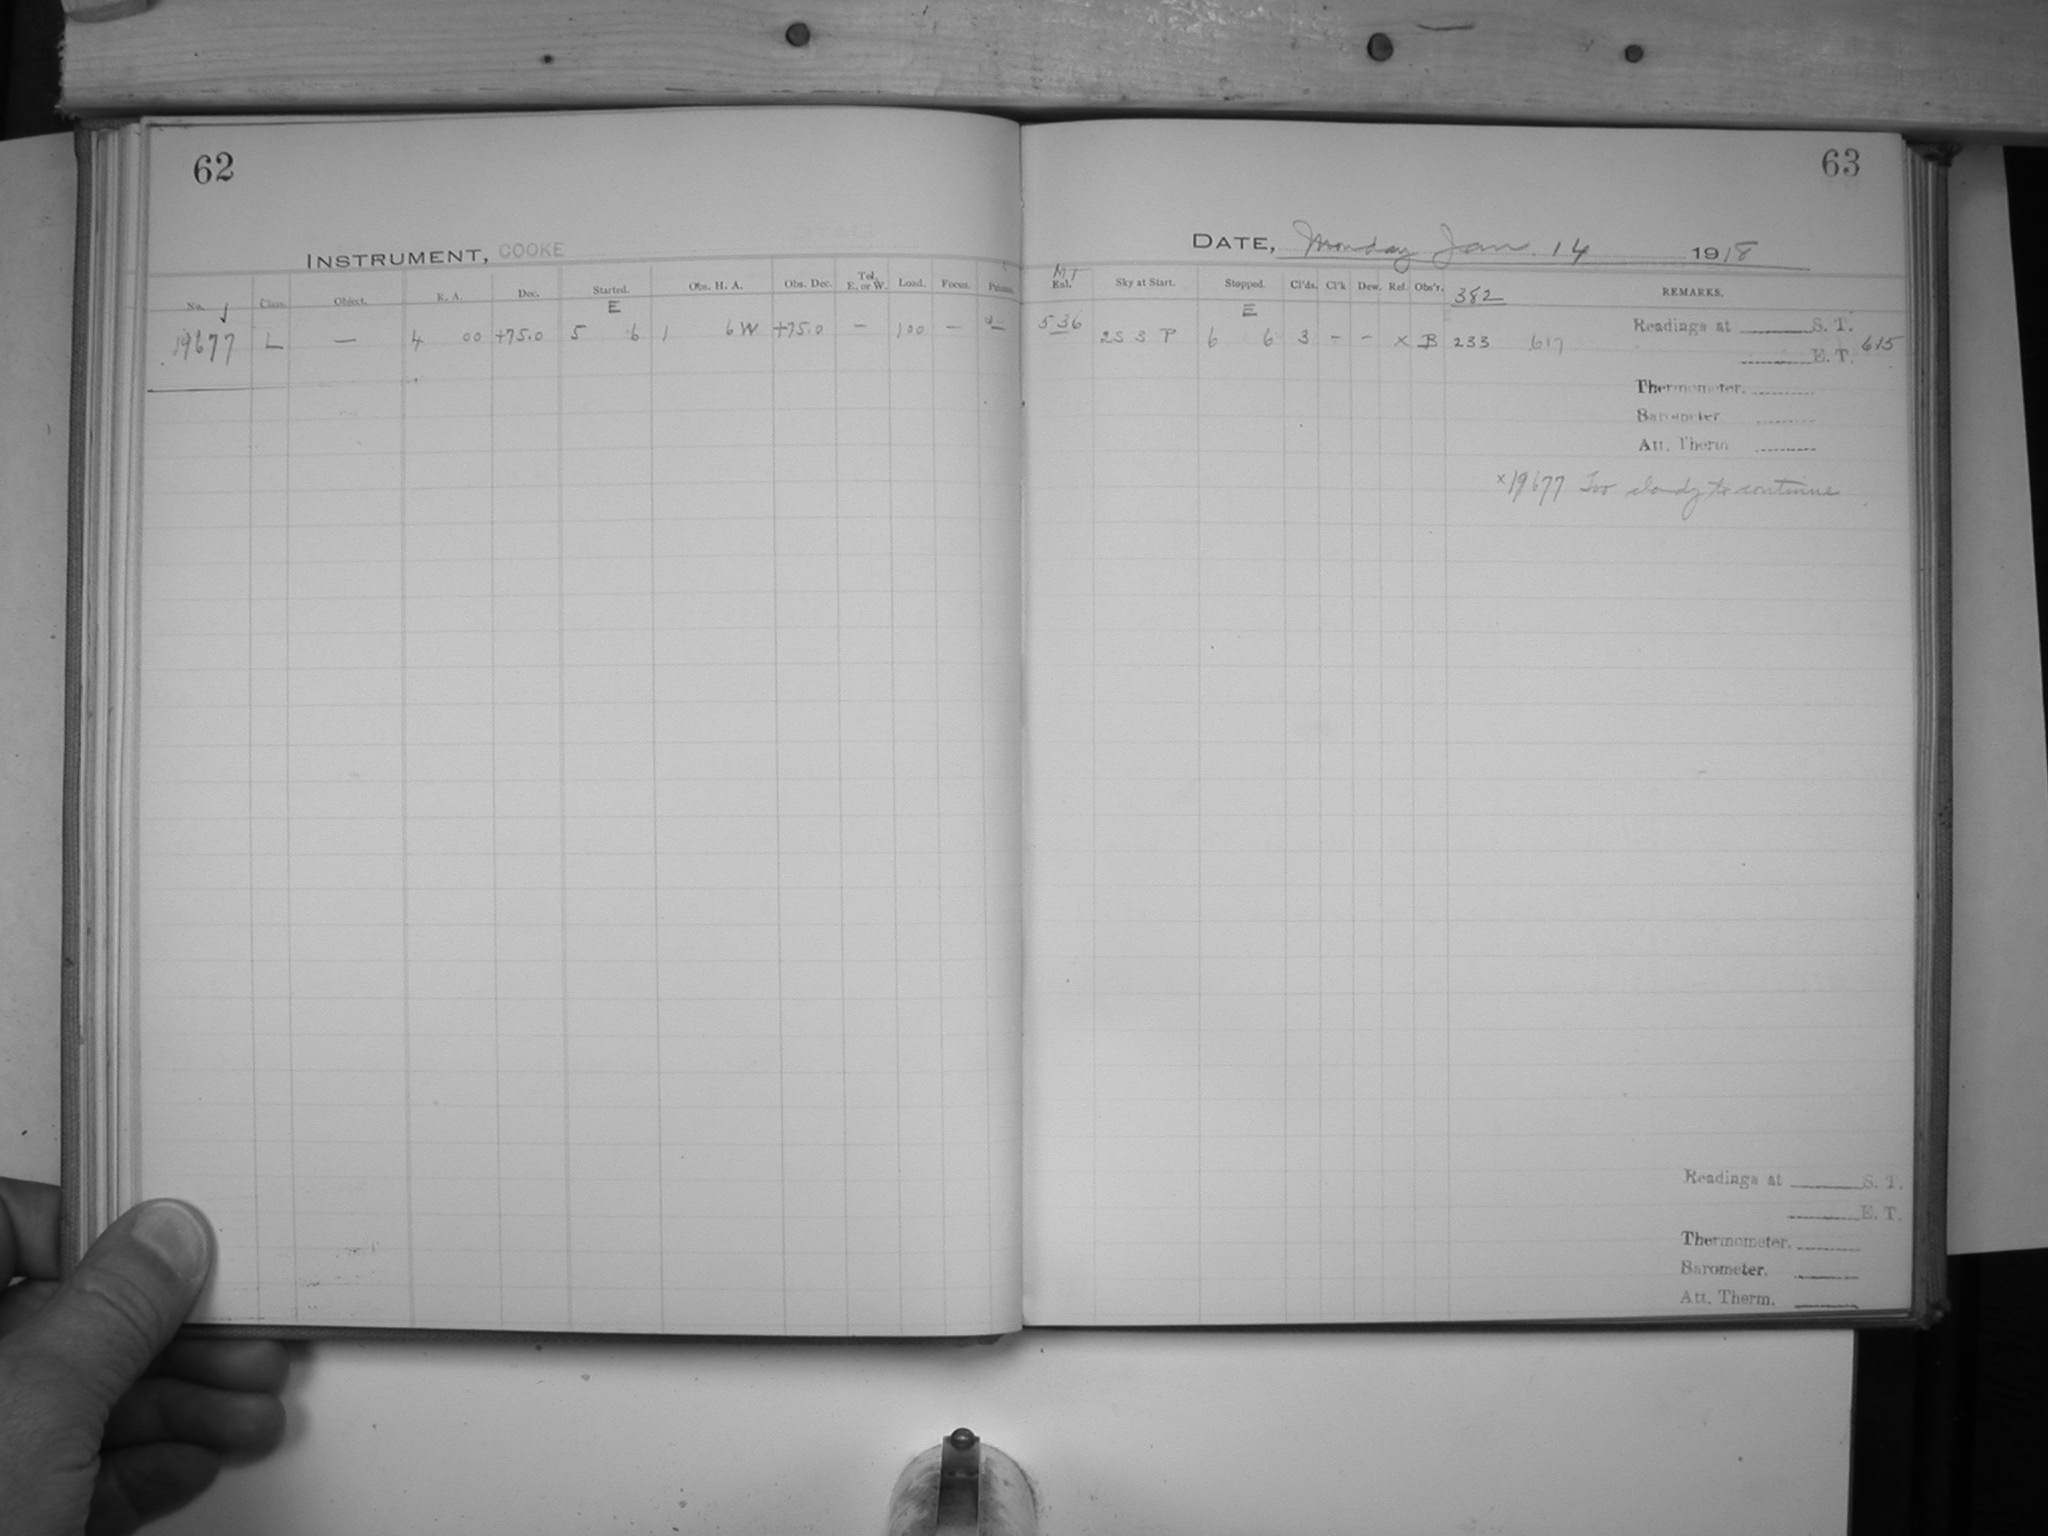 62
INSTRUMENT, COOKE
No. Class. Object. R. A. Dec. Started. Obs. H. A. Obs. Dec. Tel. E. or W. Load. Focus.
E
19677 L — 4 00 +75.0 5 6 1 6 W +75.0 — 100 —
63
DATE, Monday Jan 14 1918
Sky at Start. Stopped. Cl'ds. Cl'k Dew. Ref. Obs'r. 382 REMARKS.
E
536 2S 3 P 6 6 3 - - x B 233 617
Readings at S. T.
E. T. 615
Thermometer.
Barometer
Att. Therm
x19677 Too cloudy to continue
Readings at S. T.
E. T.
Thermometer.
Barometer.
Att. Therm.